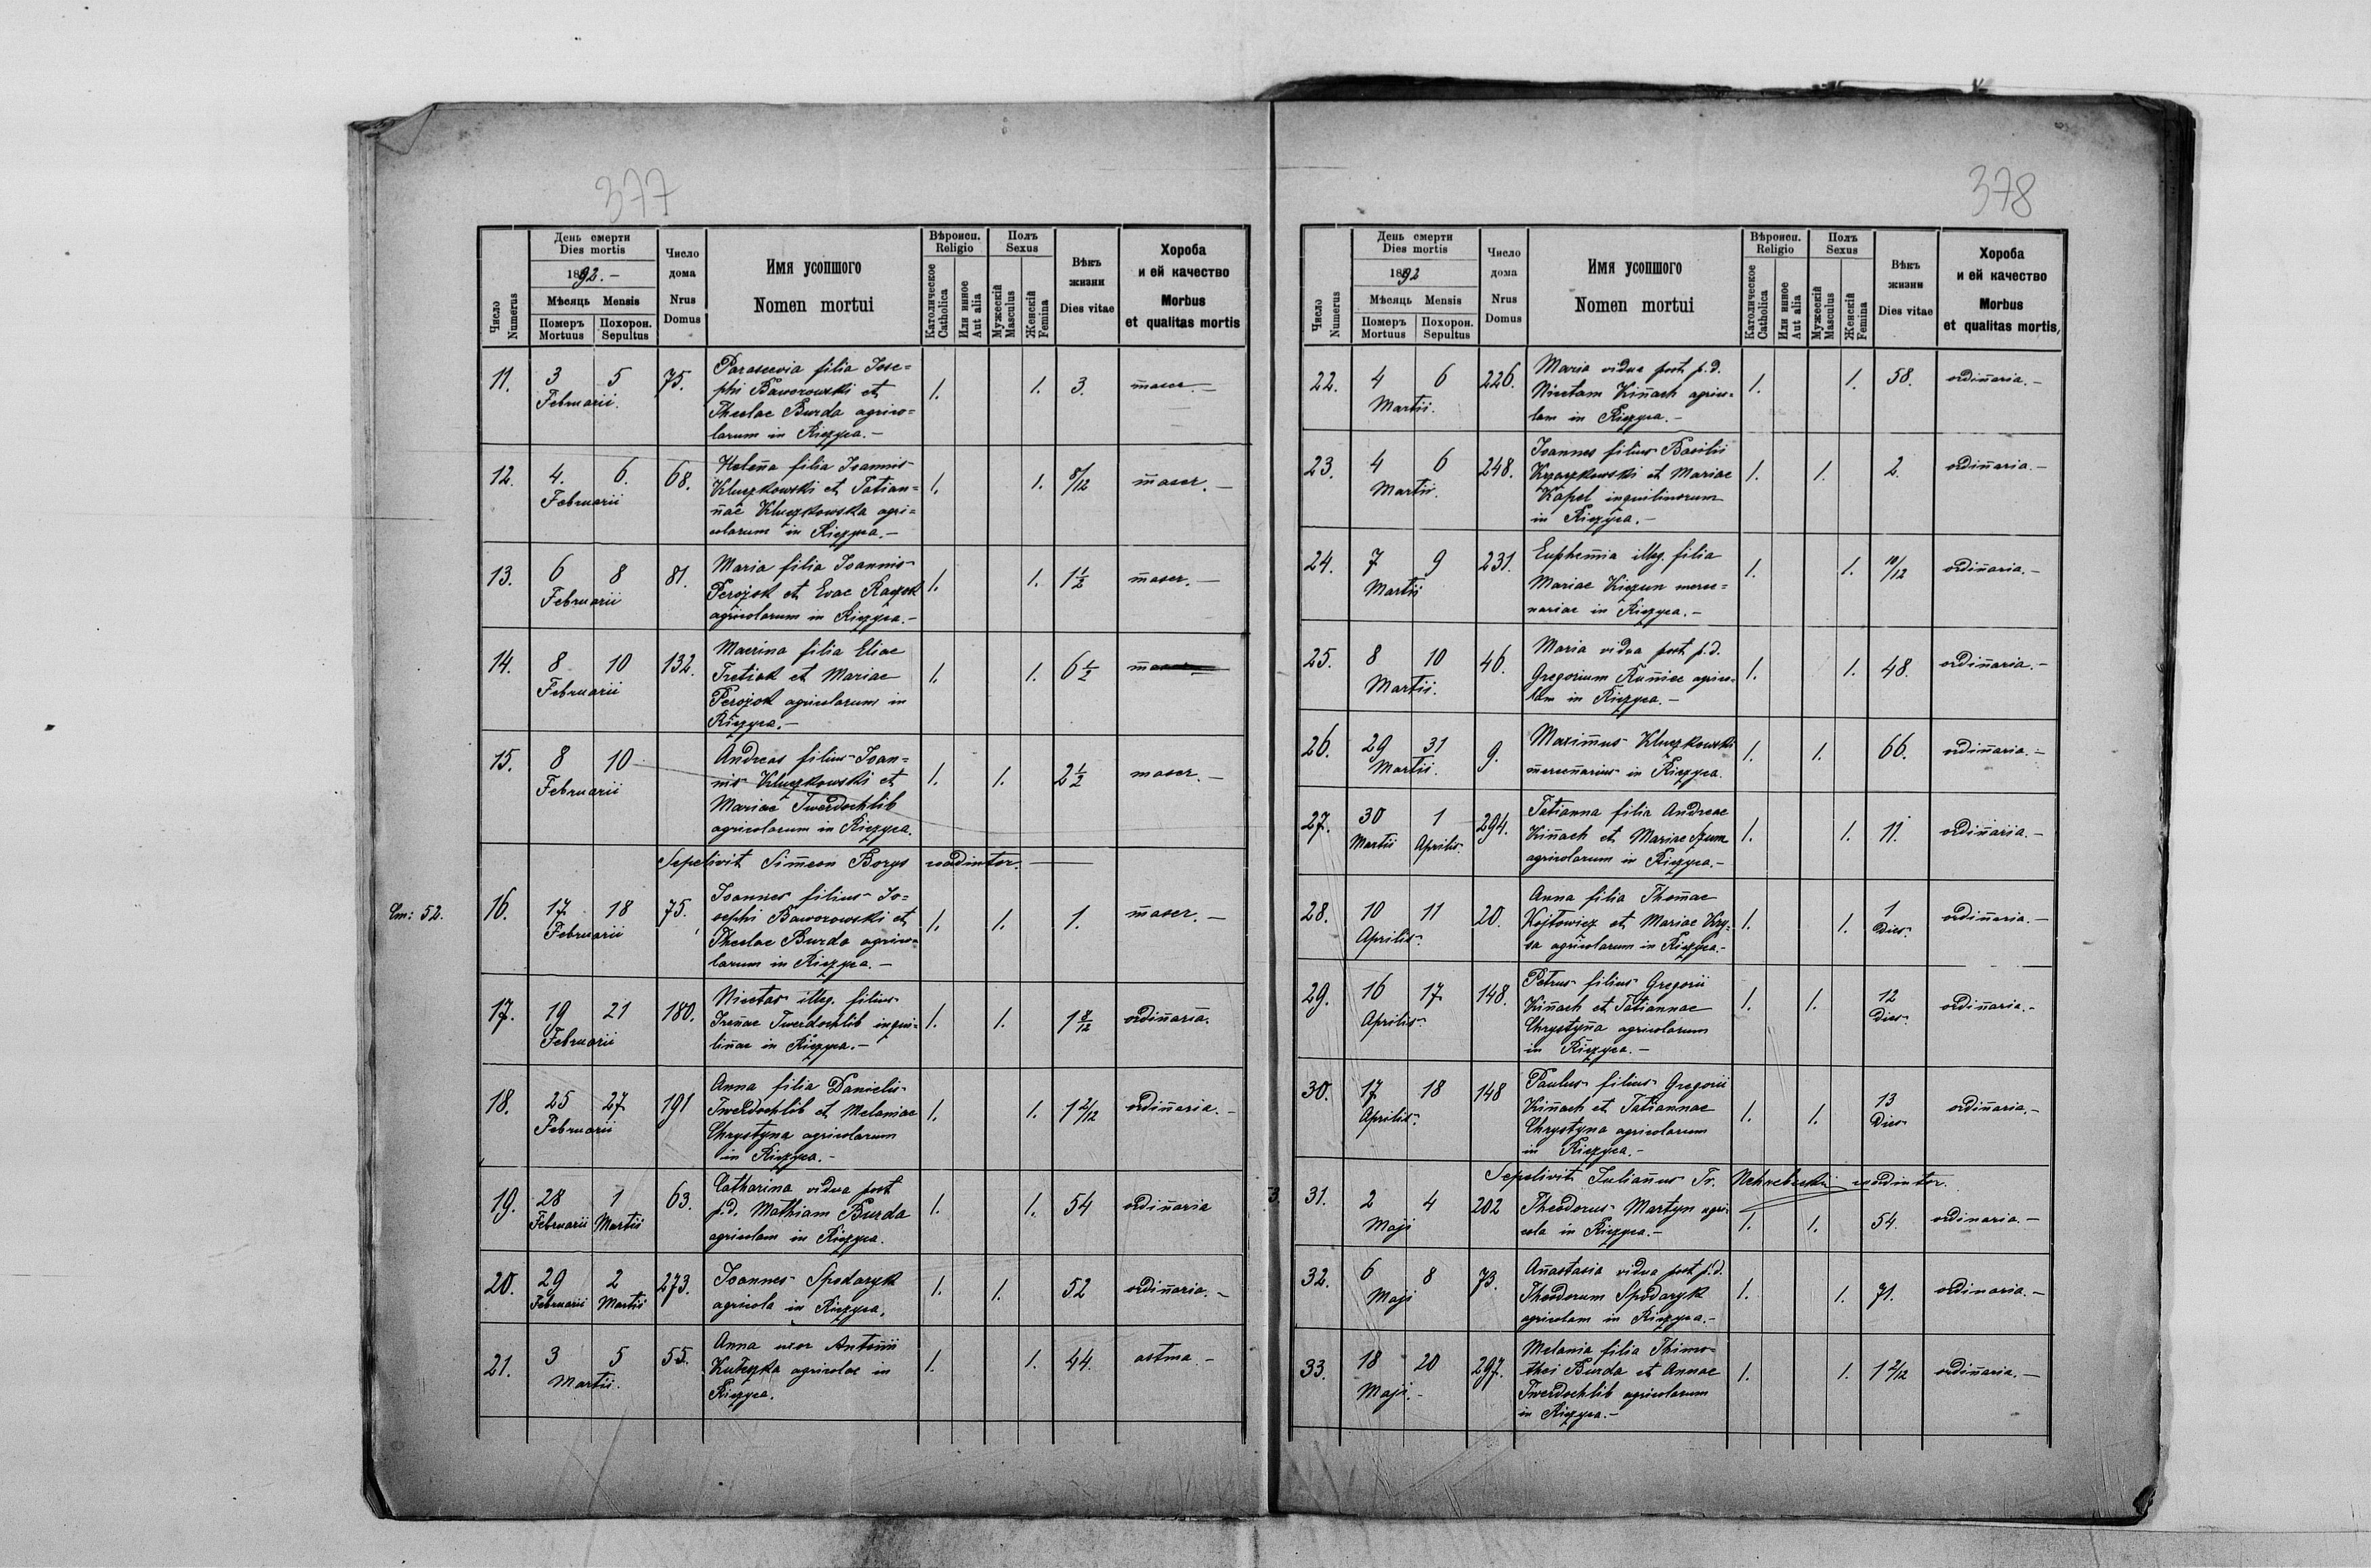 377
День смерти
Dies mortis
1892. –
Мѣсяць Mensis
Число
Numerus
Померъ
Mortuus
Похорон.
Sepultus
Число
дома
Nrus
Domus
Имя усопшого
Nomen mortui
Вѣроисп.
Religio
Католическое
Catholica
Или инное
Aut alia
Полъ
Sexus
Мужескій
Masculus
Женскій
Femina
Вѣкъ
жизни
Dies vitae
Хороба
и ей качество
Morbus
et qualitas mortis
11. 3 5 75. Parascevia filia Jose= 1. 1. 3. maser –
Februarii. phi Baworowski et
Theclae Burda agrico=
larum in Riczyca. –
12. 4. 6. 68. Helena filia Joannis 1. 1. 8/12 maser. –
Februarii Kluczkowski et Tatian=
nae Kluczkowska agri=
colarum in Riczyca. –
13. 6 8 81. Maria filia Joannis 1. 1. 1 1/2 maser. –
Februarii Perożok et Evae
agricolarum in Riczyca. –
14. 8 10 132. Macrina filia Eliae 1. 1. 6 1/2
Februarii Tretiak et Mariae
Perożok agricolarum in
Riczyca. –
15. 8 10 Andreas filius Joan= 1. 1. 2 1/2 maser. –
Februarii nis Kluczkowski et
Mariae Twerdochlib
agricolarum in Riczyca.
Sepelivit Simeon Borys coadiutor. –
52.
16. 17 18 75. Joannes filius Jo= 1. 1. 1. maser. –
Februarii sephi Baworowski et
Theclae Burda agrico=
larum in Riczyca. –
17. 19 21 180. Nicetas illeg. filius 1. 1. 1 8/12 ordinaria.
Februarii Irenae Twerdochlib inqui=
linae in Riczyca. –
18. 25 27 191 Anna filia Danielis 1. 1. 1 2/12 ordinaria. –
Februarii Twerdochlib et Melaniae
Chrystyna agricolarum
in Riczyca. –
19. 28 1 63. Catharina vidua post 1. 1. 54 ordinaria
Februarii Martii p.d. Mathiam Burda
agricolam in Riczyca.
20. 29 2 273. Joannes Spodaryk 1. 1. 52 ordinaria. –
Februarii Martii agricola in Riczyca.
21. 3 5 55. Anna uxor Antonii 1. 1. 44. astma –
Martii. agricolae in
Riczyca.
378
День смерти
Dies mortis
1892
Мѣсяць Mensis
Число
Numerus
Померъ
Mortuus
Похорон.
Sepultus
Число
дома
Nrus
Domus
Имя усопшого
Nomen mortui
Вѣроисп.
Religio
Католическое
Catholica
Или инное
Aut alia
Полъ
Sexus
Мужескій
Masculus
Женскій
Femina
Вѣкъ
жизни
Dies vitae
Хороба
и ей качество
Morbus
et qualitas mortis,
22. 4 6 226. Maria vidua post p.d. 1. 1. 58. ordinaria. –
Martii. Nicetam Kinach agrico=
lam in Riczyca. –
23. 4 6 248. Joannes filius Basilii 1. 1. 2. ordinaria. –
Martii. et Mariae
Kapel inquilinorum
in Riczyca. –
24. 7 9 231. Euphemia illeg. filia 1. 1. 10/12 ordinaria. –
Martii Mariae Kiczun merce=
nariae in Riczyca. –
25. 8 10 46. Maria vidua post p.d. 1. 1. 48. ordinaria. –
Martii. Gregorium agrico=
lam in Riczyca. –
26. 29 31 9. Maximus Kluczkowski 1. 1. 66. ordinaria. –
Martii. mercenarius in Riczyca.
27. 30 1 294. Tatianna filia Andreae 1. 1. 11. ordinaria. –
Martii Aprilis. Kinach et Mariae Szum
agricolarum in Riczyca. –
28. 10 11 20. Anna filia Thomae 1. 1. 1 ordinaria. –
Aprilis. Wojtowicz et Mariae Kry= Dies.
sa agricolarum in Riczyca. –
29. 16 17 148. Petrus filius Gregorii 1. 1. 12 ordinaria. –
Aprilis. Kinach et Tatiannae Dies.
Chrystyna agricolarum
in Riczyca. –
30. 17 18 148 Paulus filius Gregorii 1. 1. 13 ordinaria. –
Aprilis. Kinach et Tatiannae Dies
Chrystyna agricolarum
in Riczyca. –
Sepelivit Julianus Tr. Nehrebecki coadiutor.
31. 2 4 202 Theodorus Martyn agri= 1. 1. 54. ordinaria. –
Maji cola in Riczyca. –
32. 6 8 73. Anastasia vidua post p.d. 1. 1. 71. ordinaria. –
Maji Theodorum Spodaryk
agricolam in Riczyca. –
33. 18 20 297. Melania filia Thimo= 1. 1. 1 2/12 ordinaria. –
Maji. – thei Burda et Annae
Twerdochlib agricolarum
in Riczyca. –